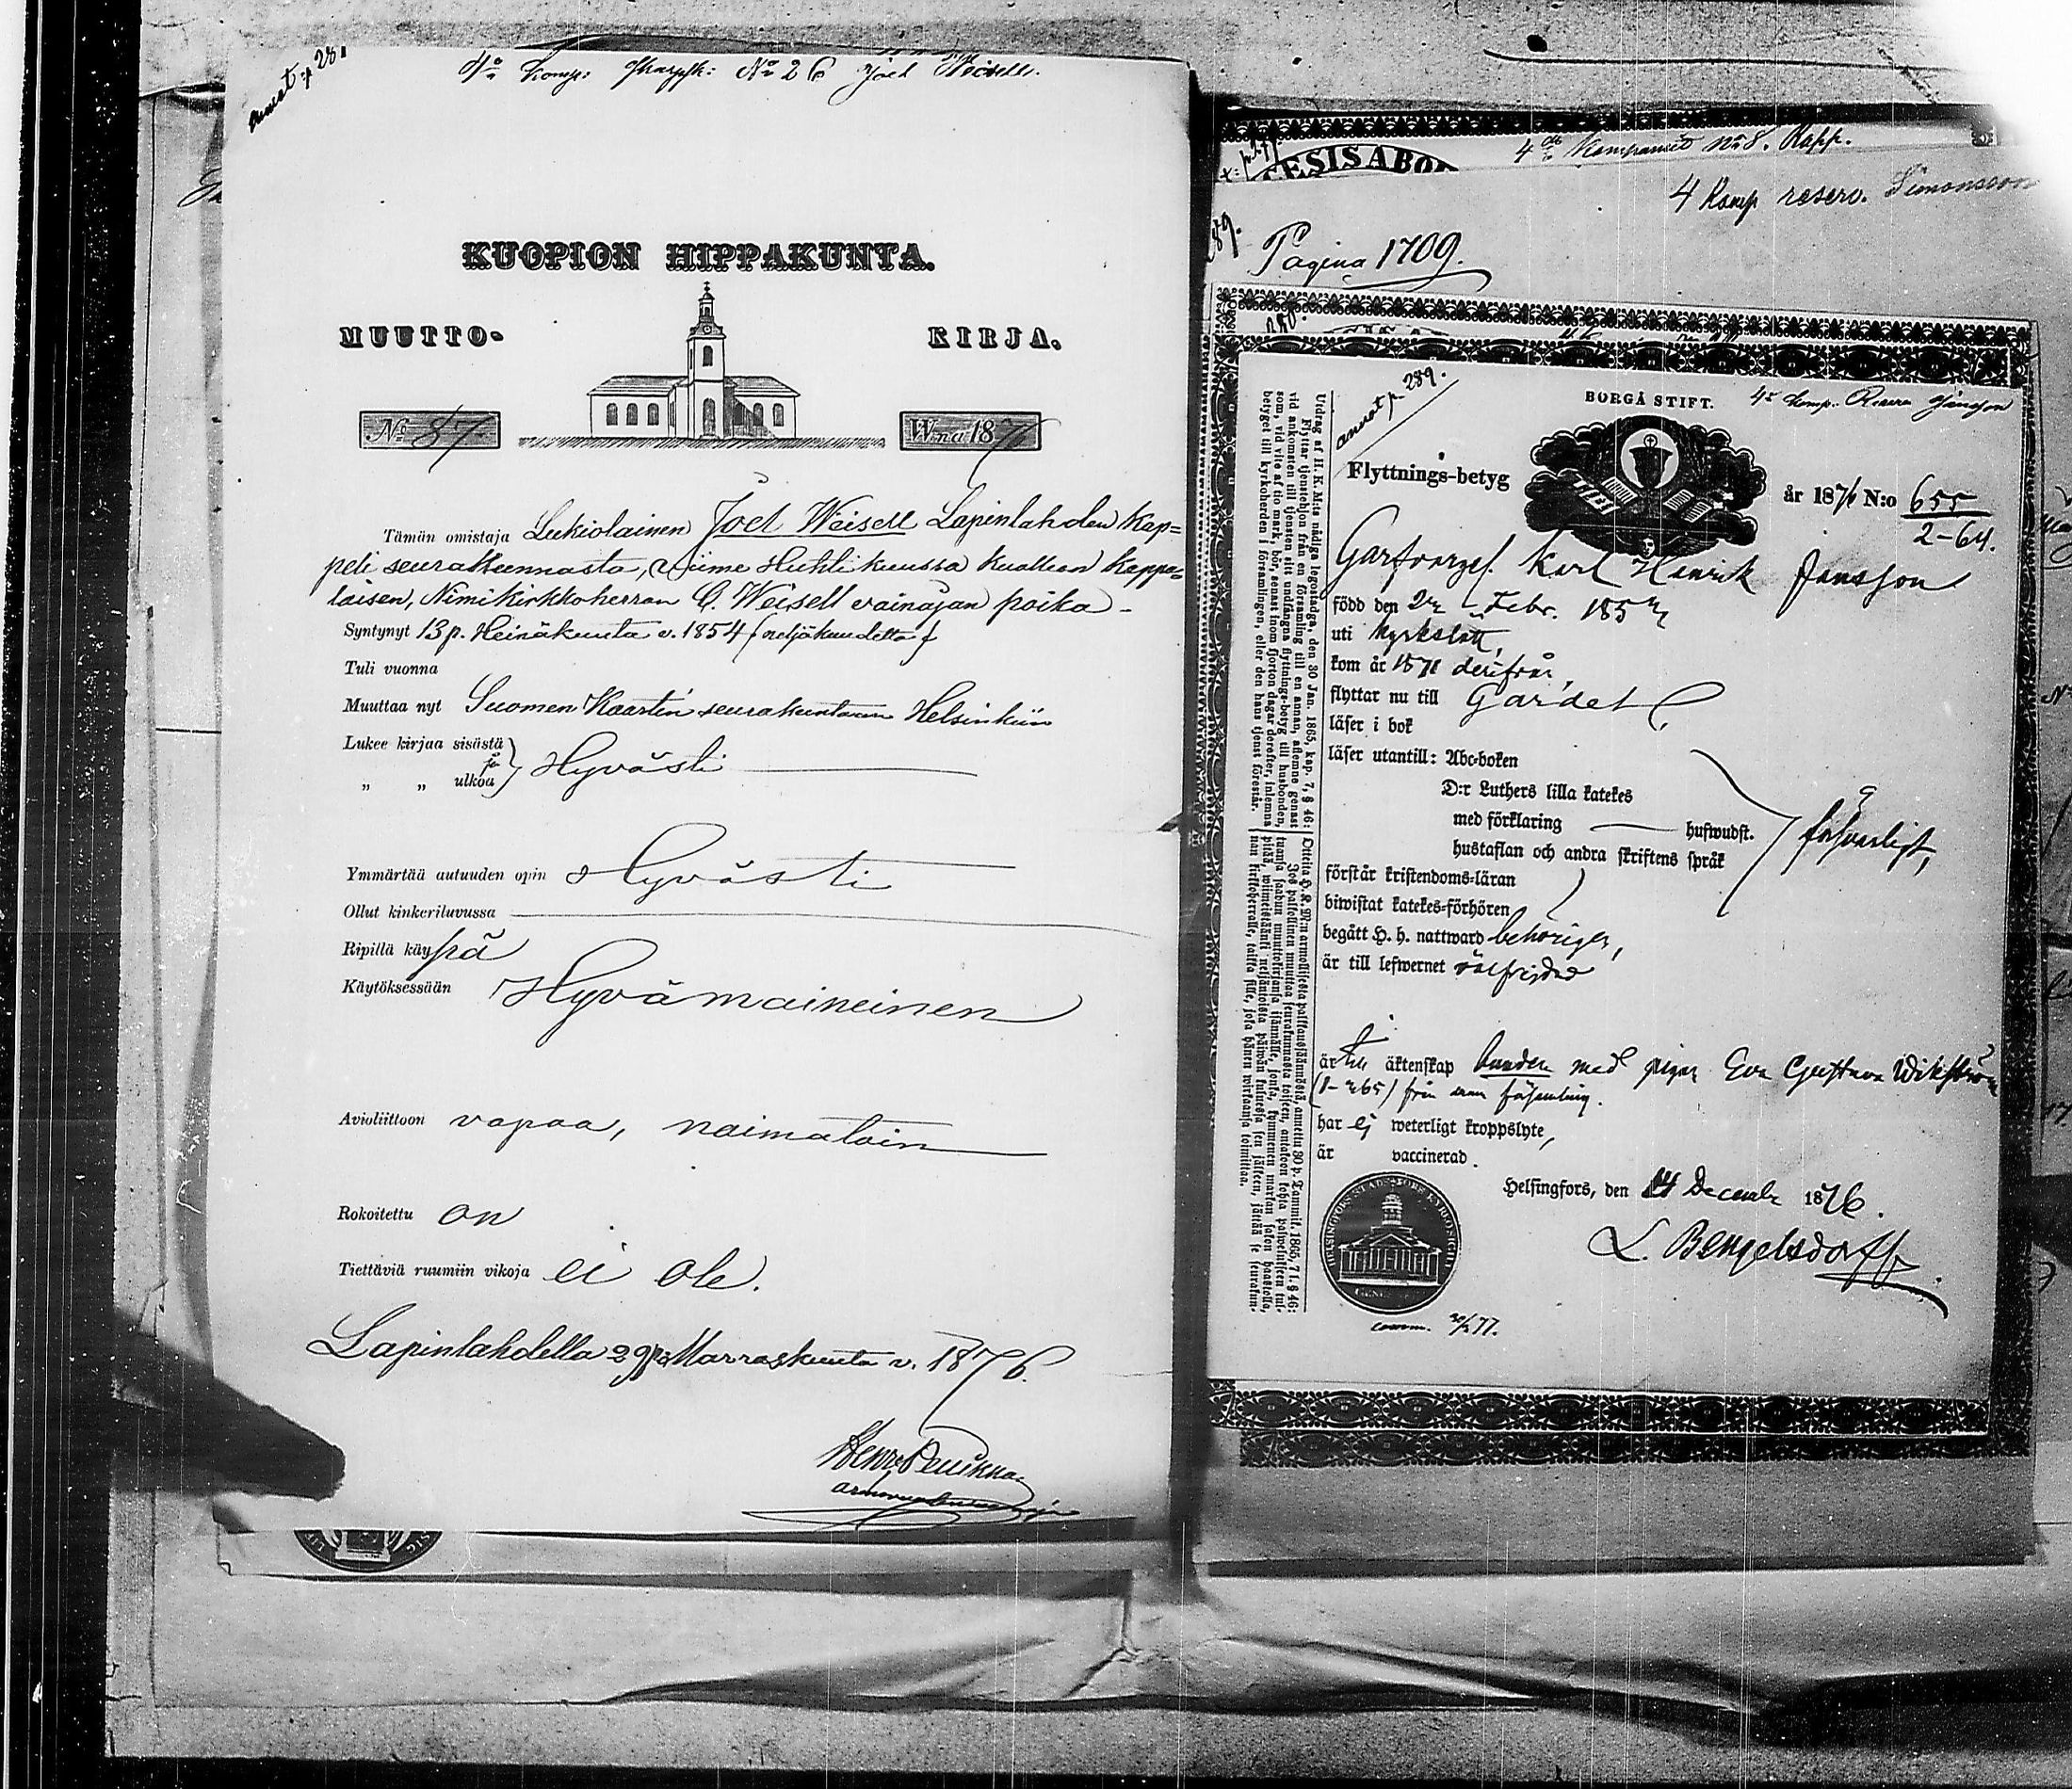 annot. p. 281
4de Komp: Skarpsk: No 26 Joel Weisell.
KUOPION HIPPAKUNTA.
MUUTTO- KIRJA.
No 87 Wna 1876
Tämän omistaja Lukiolainen Joel Weisell Lapinlahden Kap=
peli seurakunnasta, viime Huhtikuussa kuolleen Kappa=
laisen, Nimikirkkoherran C. Weisell vainajan poika -
Syntynyt 13 p. Heinäkuuta v. 1854 (neljäkuudetta)
Tuli vuonna
Muuttaa nyt Suomen Kaartin seurakuntaan Helsinkiin
Lukee kirjaa sisästä
ja Hyvästi
„ „ ulkoa
Ymmärtää autuuden opin Hyvästi
Ollut kinkeriluvussa
Ripillä käypä
Käytöksessään Hyvämaineinen
Avioliittoon vapaa, naimatoin
Rokoitettu on
Tiettäviä ruumiin vikoja ei ole.
Lapinlahdella 29 p. Marraskuuta v. 1876.
4de Kompaniet No 8. Rapp.
4 Komp reserv. Simonsson
Pagina 1709.
annot p. 289.
BORGÅ STIFT.
4e Komp. Reserv Jansson
Flyttnings-betyg år 1876 N:o 655
2-64.
Karl Henrik Jansson
född den Febr. 185
uti Kyrkslätt,
kom år 1871 derifrån,
flyttar nu till Gardet
läser i bok
läser utantill: Abc-boken
D:r Luthers lilla katekes
med förklaring hufwudst.
hustaflan och andra skriftens språk försvarligt,
förstår kristendoms-läran
biwistat katekes-förhören
begått H. h. nattward behörigen,
är till lefwernet välfrejdad
är till äktenskap bunden med pigan Eva Gustava Wikström
från egen församling.
har ej weterligt kroppslyte,
är vaccinerad.
Helsingfors, den 14 December 1876.
L. Bengelsdorff
comm. 77.
Utdrag af H. K. M:ts nådiga legostadga, den 30 Jan. 1865, kap. 7, § 46:
Flyttar tjenstehjon från en församling till en annan, aflemne genast
vid ankomsten till tjensten sitt undfångna flyttnings-betyg till husbonden,
som, vid vite af tio mark, bör, sednast inom fjorton dagar derefter, inlemna
betyget till kyrkoherden i församlingen, eller den hans tjenst förestår.